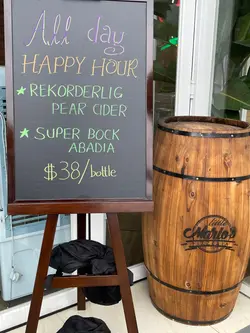 All day
HAPPY HOUR
★ REKORDERLIG
PEAR CIDER
★ SUPER BOCK
ABADIA
$38/bottle
Little
Mario's